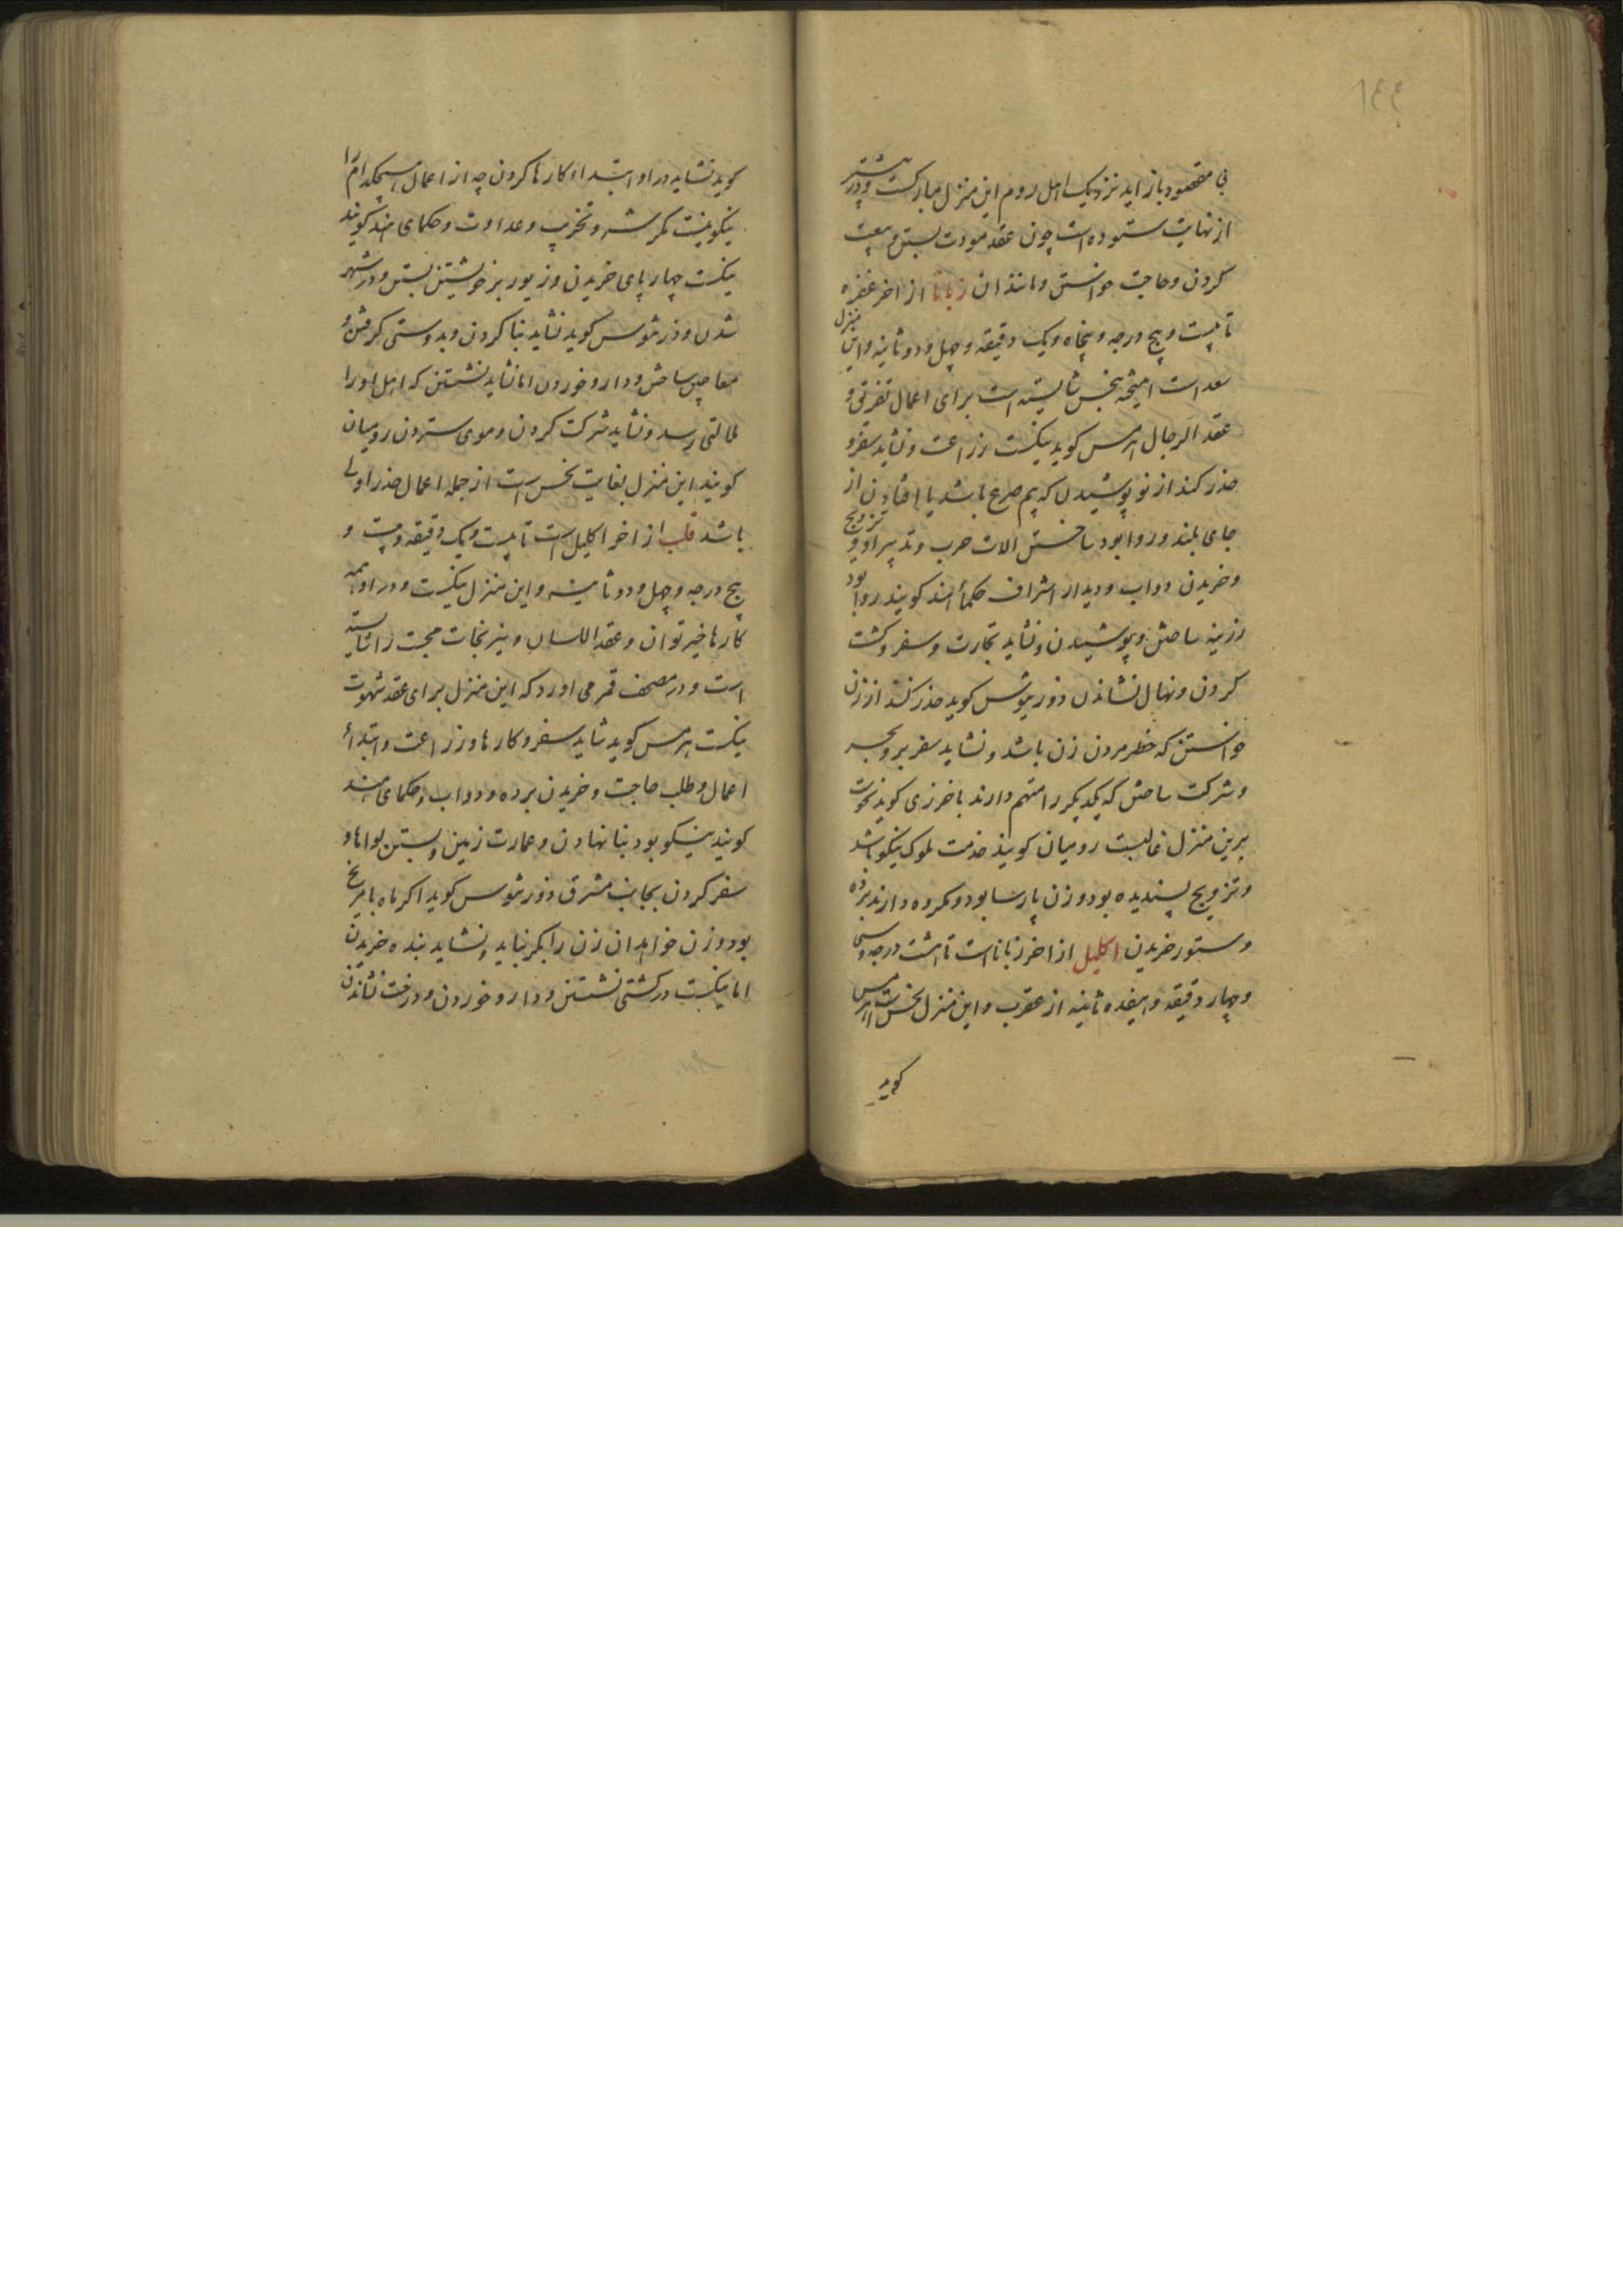 ١٤٤
بی مقصود باز اید نزدیک اهل روم این منزل مبارکست و در بیشتر
از نهایت ستوده است چون عقد مودت بستن و بیعت
کردن و حاجت خواستن و مانند ان زبانا از اخر غفره
تا بیست و پنج درجه و پنجاه و یک دقیقه و چهل و دو ثانیه و این منزل
سعد است امیخته بنحس شایسته است برای اعمال تفرقی و
عقد الرجال هرمس کوید نیکست زراعت و نشاید سفر و
حذر کند از نو پوشیدن که بیم صرع باشد یا افتادن از
جای بلند و روا بود ساختن الات حرب و تدبیر او و تزویج
و خریدن دواب و دیدار اشراف حکماء هند کویند روا بود
زرینه ساختن و پوشیدن و نشاید تجارت و سفر و کشت
کردن و نهال نشاندن ذوریثوس کوید حذر کند از زن
خواستن که خطر مردن زن باشد و نشاید سفر بر و بحر
و شرکت ساختن که یکدیکر را متهم دارند باخرزی کوید نحوست
برین منزل غالبست رومیان کویند خدمت ملوک نیکو باشد
و تزویج پسندیده بود و زن پارسا بود و مکروه دارند برده
و ستور خریدن اکلیل از اخر زبانا است تا هشت درجه و سی
و چهار دقیقه و هیفده ثانیه از عقرب و این منزل نحس است هرمس
کوید
کوید نشاید در او ابتداء کارها کردن چه از اعمال هیچکدام را
نیکو نیست مکر شر و تخریب و عداوت و حکمای هند کویند
نیکست چهار پای خریدن و زیور بر خویشتن بستن و در شهر
شدن و ذرثیوس کوید نشاید بنا کردن و بدوستی کرفتن و
معاجین ساختن و دارو خوردن اما نشاید نشستن که اهل او را
ملالتی رسد و نشاید شرکت کردن و موی ستردن رومیان
کویند این منزل بغایت نحس است از جمله اعمال حذر اولی
باشد قلب از اخر اکلیل است تا بیست و یک دقیقه و بیست و
پنج درجه و چهل و دو ثانیه و این منزل نیکست و در او همه
کارها خیر توان و عقد اللسان و نیرنجات محبت را شایسته
است و در مصحف قمر می اورد که این منزل برای عقد شهوت
نیکست هرمس کوید شاید سفر و کارها و زراعت و ابتداء
اعمال و طلب حاجت و خریدن برده و دواب و حکمای هند
کویند نیکو بود بنا نهادن و عمارت زمین و بستن لواها و
سفر کردن بجانب مشرق ذورثیوس کوید اکر ماه با مریخ
بود و زن خواهد ان زن را بکر نیابد و نشاید بنده خریدن
اما نیکست در کشتی نشستن و دارو خوردن و درخت نشاندن